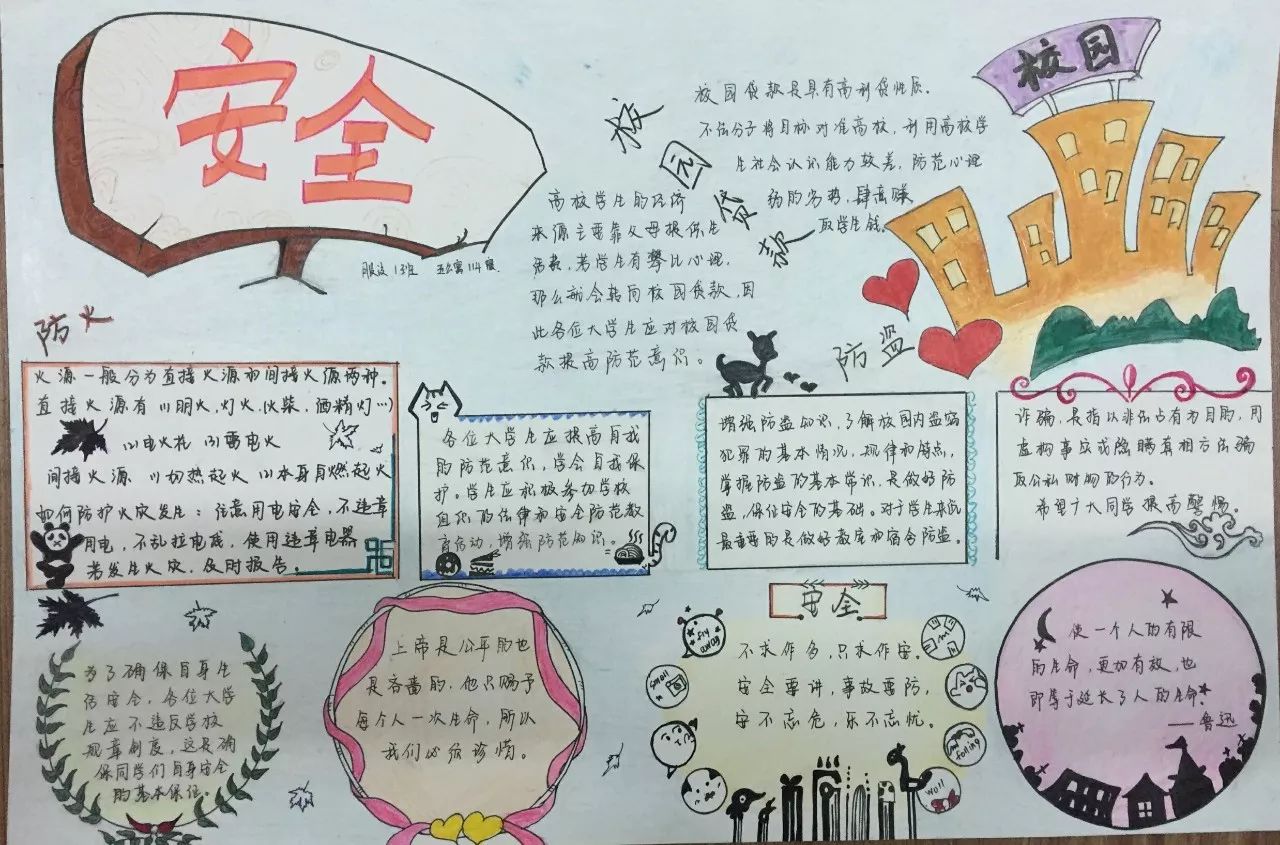 安全
校园
校园贷款
校园贷款是具有高利贷性质。
不法分子将目标对准高校，利用高校学
生社会认识能力较差，防范心理
弱的劣势，肆意赚
取学生钱。
高校学生的经济
来源主要靠父母提供生
活费，若学生有攀比心理，
那么就会转向校园贷款，因
此各位大学生应对校园贷
款提高防范意识。
13班
114寝
防火
火源一般分为直接火源和间接火源两种。
直接火源有(1)明火，灯火，火柴，酒精灯…)
(2)电火花 (3)雷电火
间接火源 (1)加热起火 (2)本身自燃起火
如何防护火灾发生：注意用电安全，不违章
用电，不乱拉电线，使用违章电器
若发生火灾，及时报告。
各位大学生应提高自我
的防范意识，学会自我保
护。学生应积极参加学校
组织的法律和安全防范教
育活动，增强防范知识。
防盗
增强防盗知识，了解校园内盗窃
犯罪的基本情况，规律和特点，
掌握防盗的基本常识，是做好防
盗，保住安全的基础。对于学生来说
最重要的是做好教室和宿舍防盗。
诈骗，是指以非法占有为目的，用
虚构事实或隐瞒真相方法骗
取公私财物的行为。
希望广大同学提高警惕。
为了确保自身生
活安全，各位大学
生应不违反学校
规章制度，这是确
保同学们自身安全
的基本保证。
上帝是公平的也
是吝啬的，他只赐予
每个人一次生命，所以
我们必须珍惜。
安全
不求作名，只求作安。
安全要讲，事故要防，
安不忘危，乐不忘忧。
fly away
small
falling
wolf
使一个人的有限
的生命，更加有效，也
即等于延长了人的生命
——鲁迅